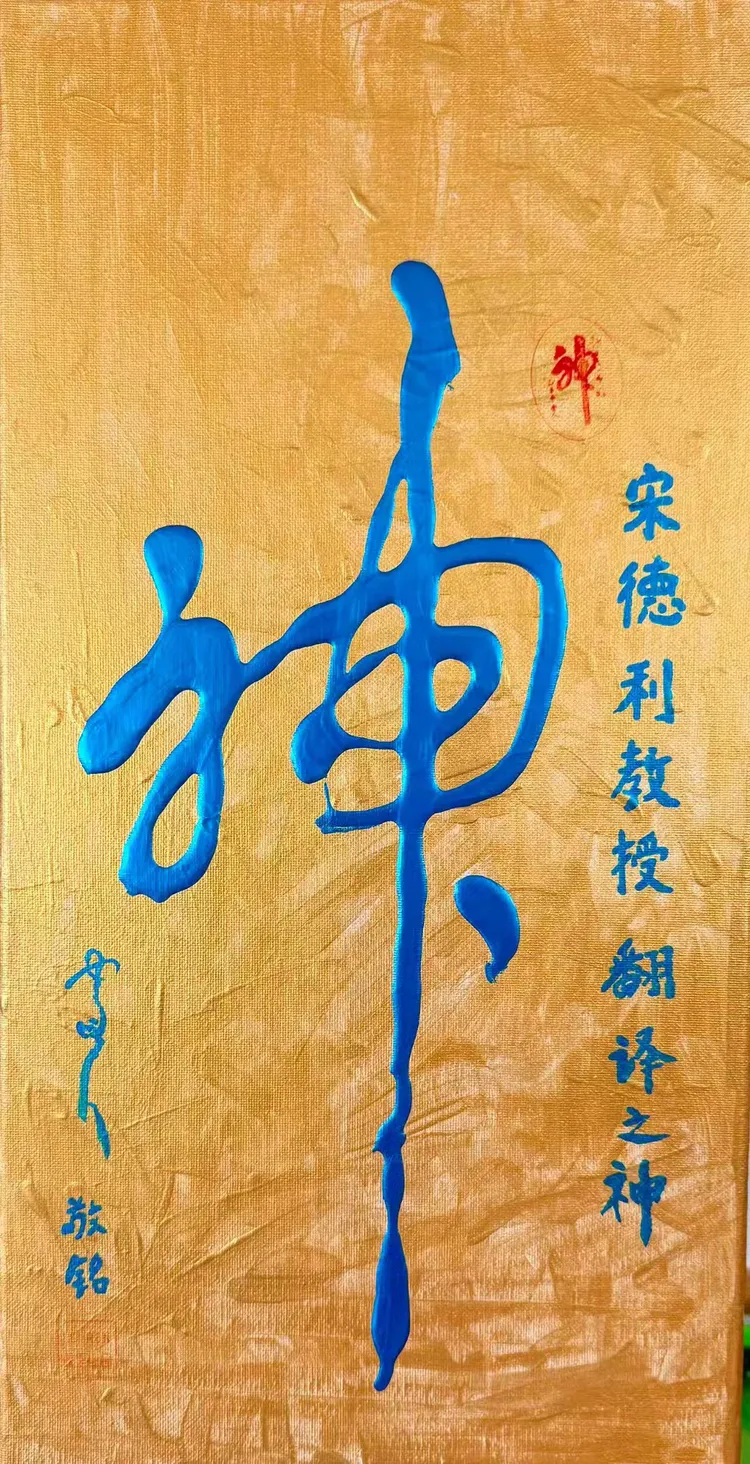 宋德利教授 翻译之神
神
神
敬铭